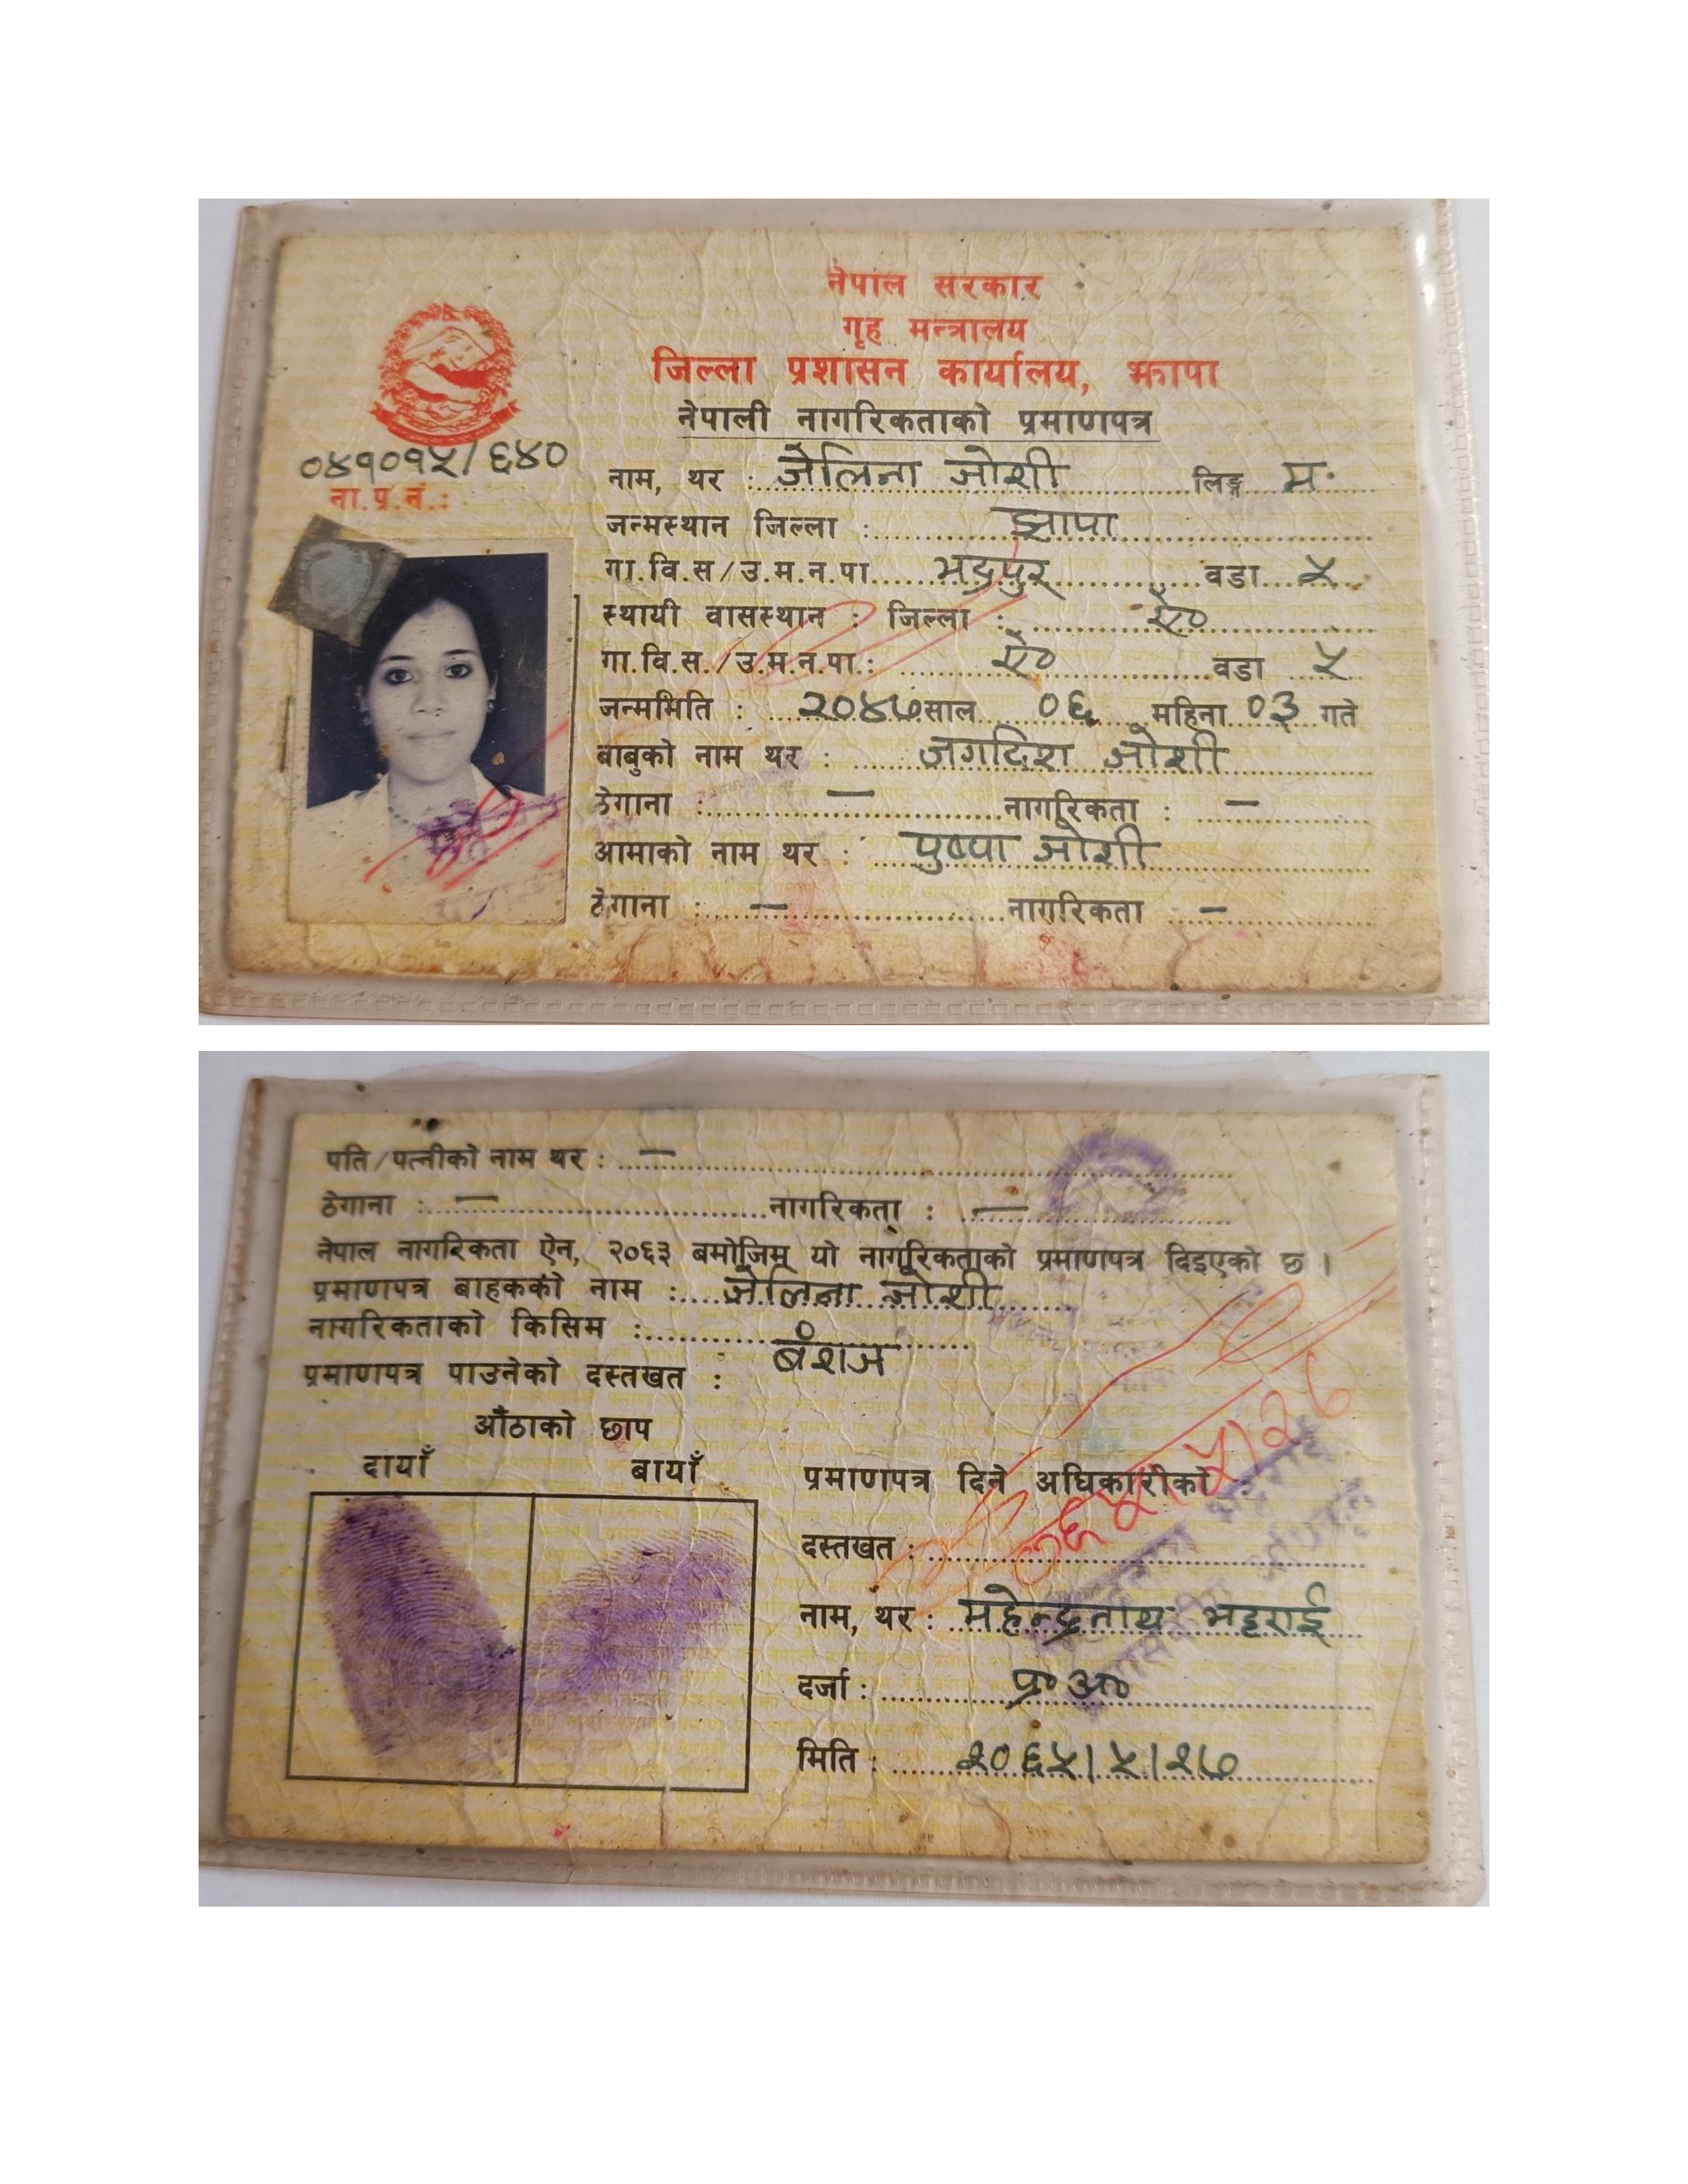 नेपाल सरकार
गृह मन्त्रालय
जिल्ला प्रशासन कार्यालय, झापा
नेपाली नागरिकताको प्रमाणपत्र
०४१०१५/६४०
ना.प्र.नं.:
नाम, थर : जेलिना जोशी लिङ्ग म.
जन्मस्थान जिल्ला : झापा
गा.वि.स/उ.म.न.पा. भद्रपुर वडा ५
स्थायी वासस्थान : जिल्ला : ऐ०
गा.वि.स./उ.म.न.पा.: ऐ० वडा ५
जन्ममिति : २०४७ साल ०६ महिना ०३ गते
बाबुको नाम थर : जगदिश जोशी
ठेगाना : — नागरिकता : —
आमाको नाम थर : पुष्पा जोशी
ठेगाना : — नागरिकता —
पति/पत्नीको नाम थर : —
ठेगाना : — नागरिकता : —
नेपाल नागरिकता ऐन, २०६३ बमोजिम यो नागरिकताको प्रमाणपत्र दिइएको छ ।
प्रमाणपत्र बाहकको नाम : जेलिना जोशी
नागरिकताको किसिम : बंशज
प्रमाणपत्र पाउनेको दस्तखत :
औंठाको छाप
दायाँ बायाँ
प्रमाणपत्र दिने अधिकारीको :
दस्तखत :
नाम, थर : महेन्द्रनाथ भट्टराई
दर्जा : प्र०अ०
मिति : २०६५|५|२७